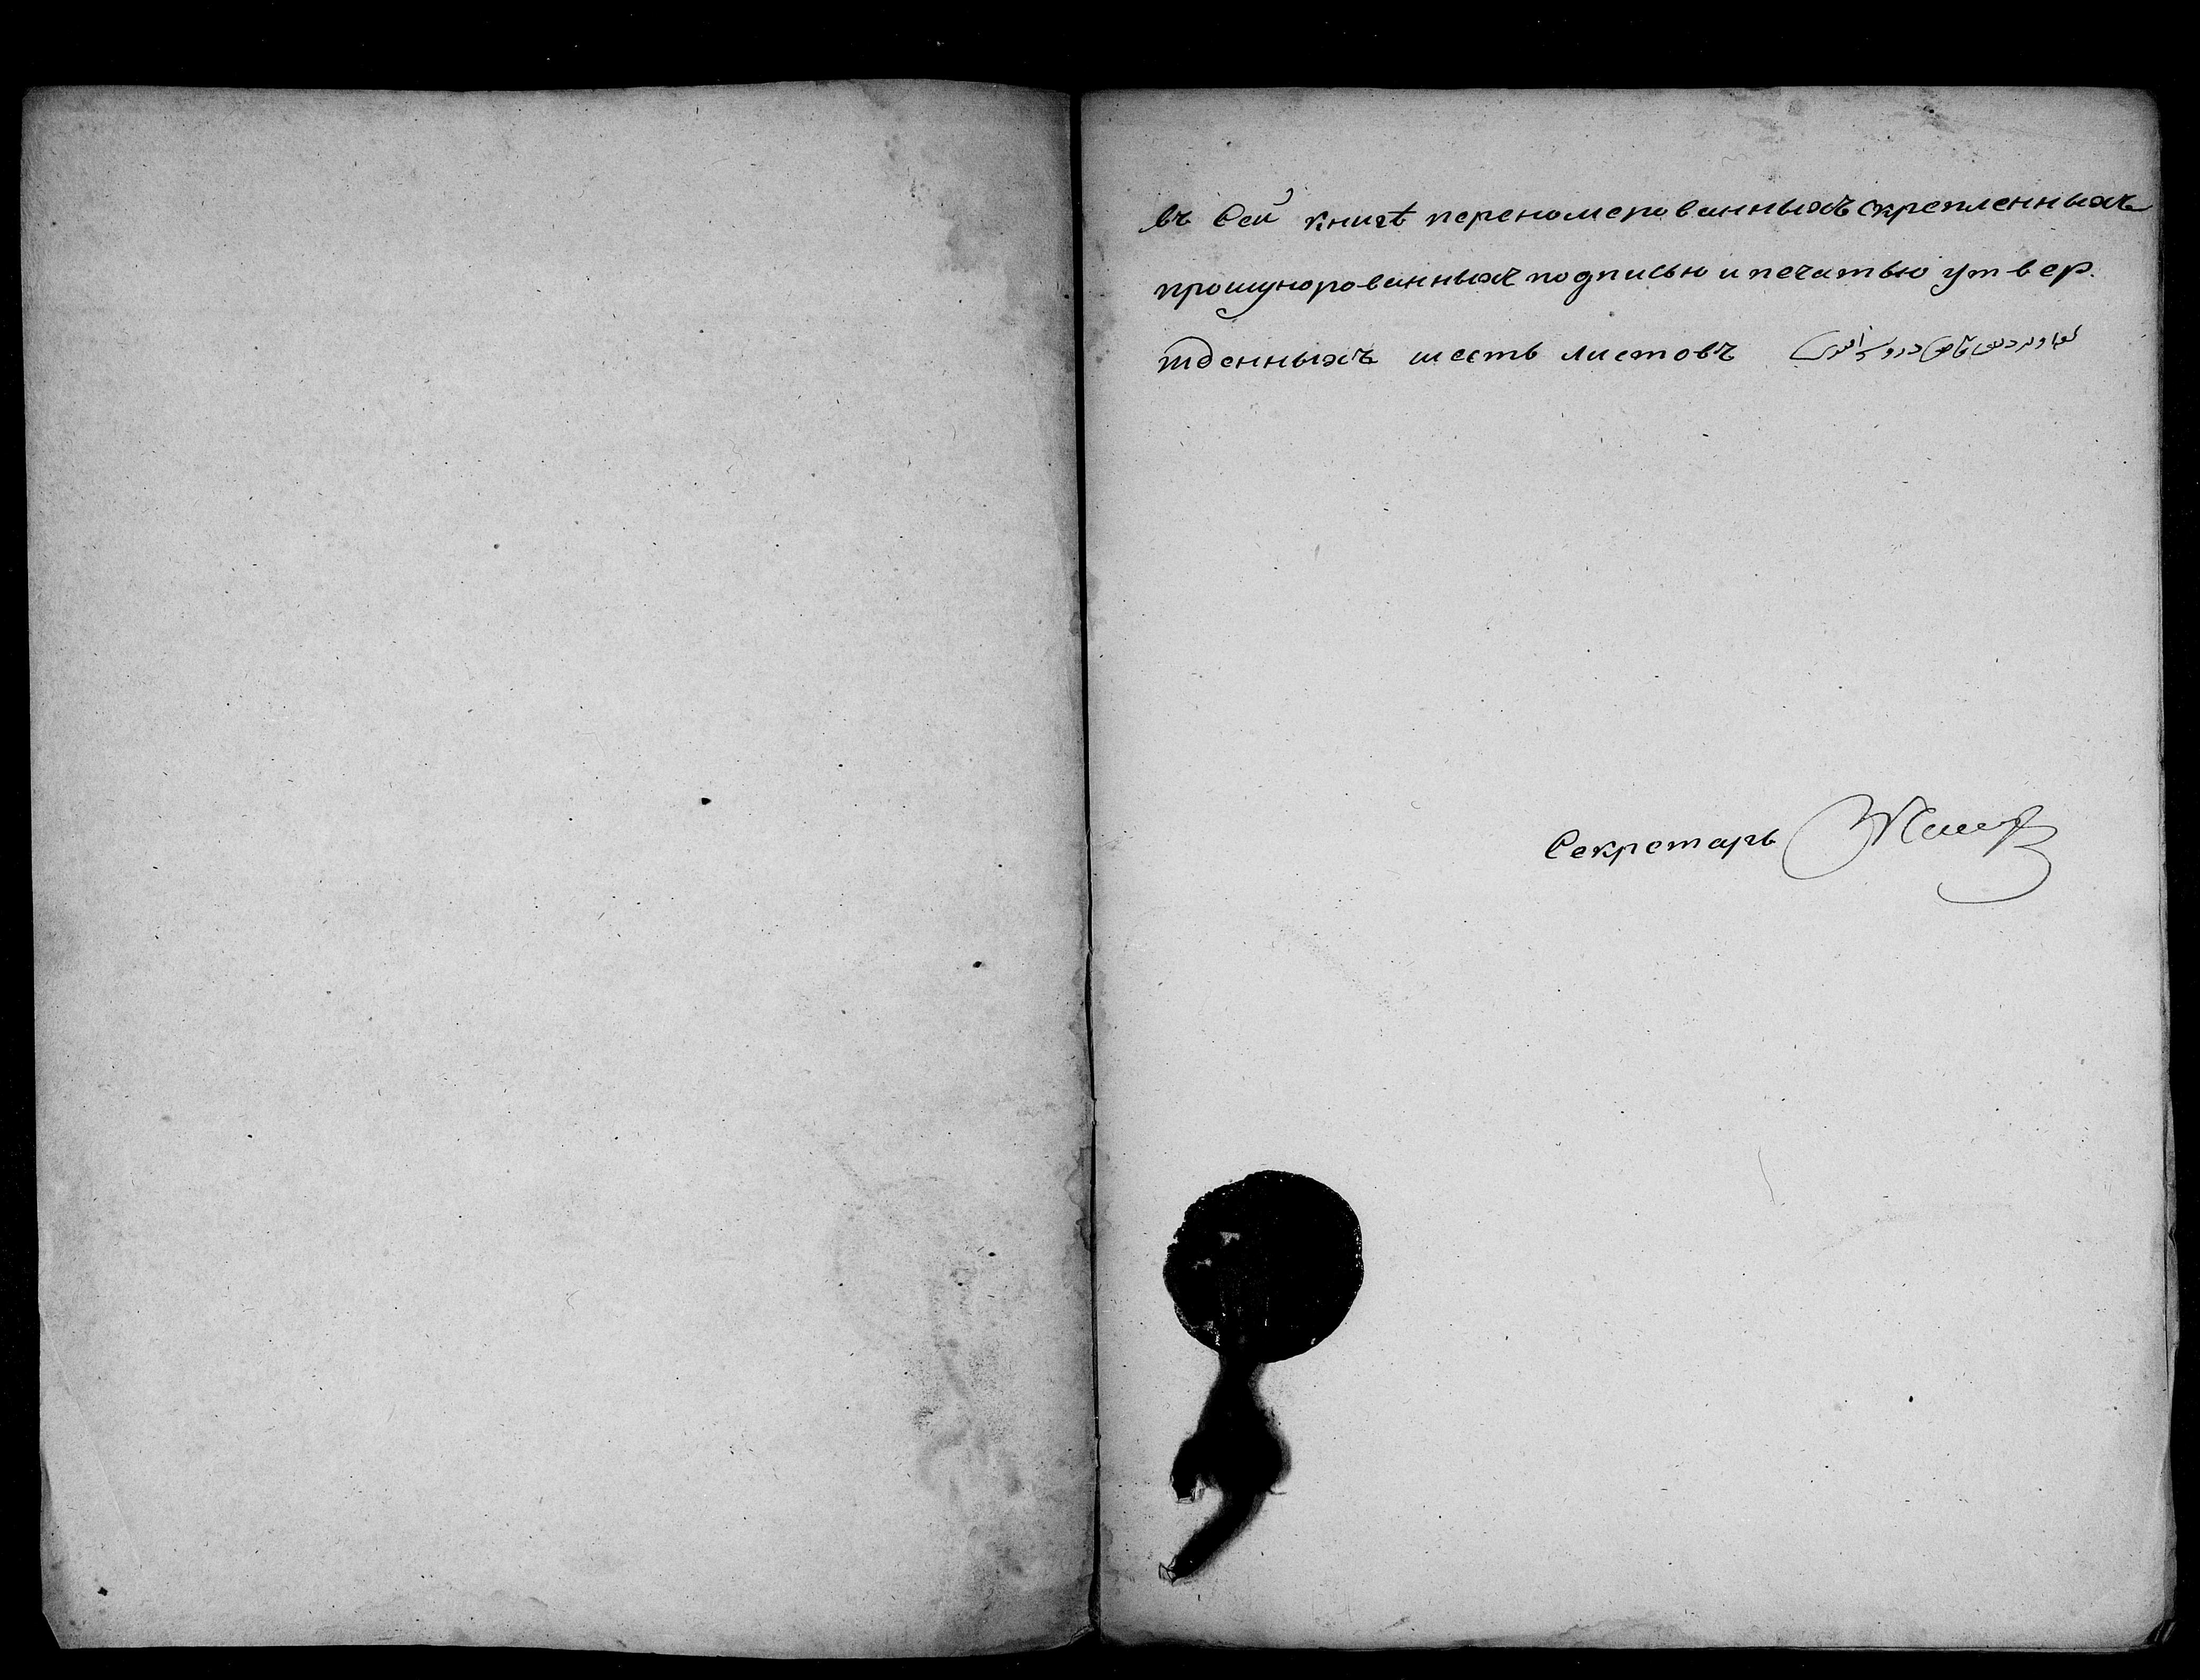 въ Сей книгѣ переномерованныхъ скрепленныхъ
прошнурованныхъ подписью и печатью утвер.
жденныхъ шесть листовъ
Секретарь